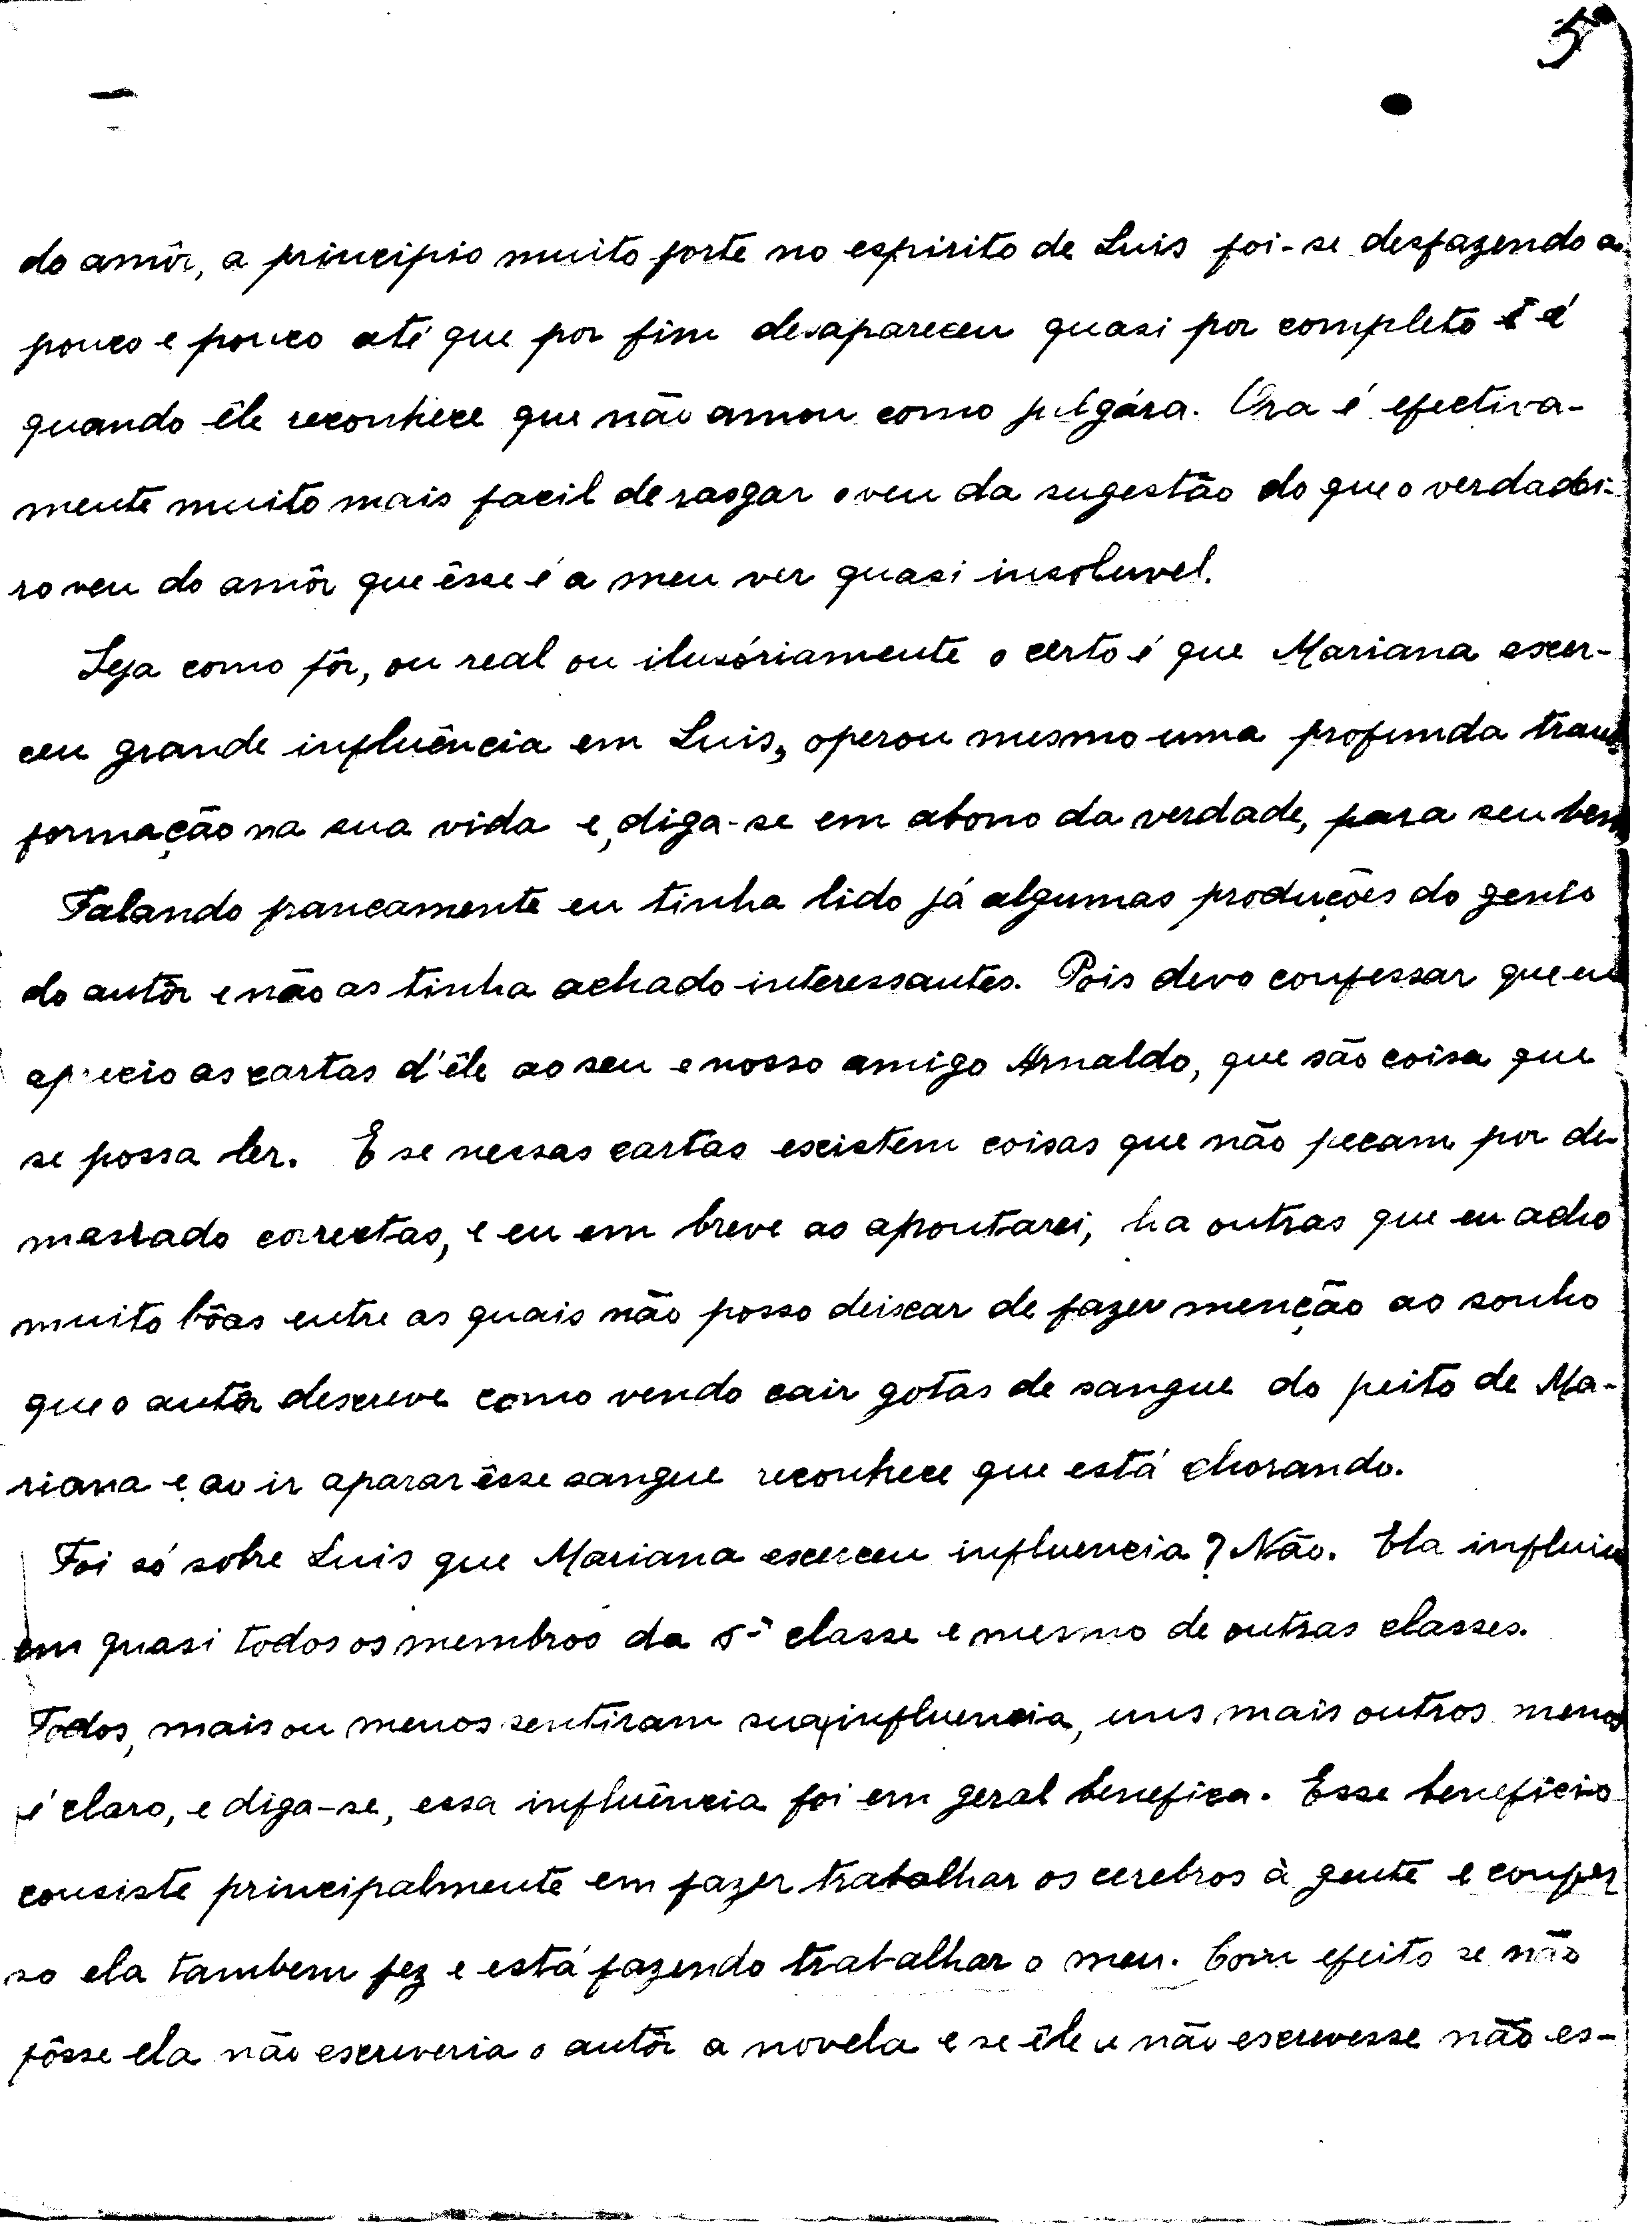 5
do amôr, a principio muito forte no espirito de Luis foi-se desfazendo a
pouco e pouco até que por fim desapareceu quasi por completo e é
quando êle reconhece que não amou como julgára. Ora é efectiva-
mente muito mais facil de rasgar o veu da sugestão do que o verdadei-
ro veu do amôr que êsse é a meu ver quasi insoluvel.
Seja como fôr, ou real ou ilusóriamente o certo é que Mariana exer-
ceu grande influência em Luis, operou mesmo uma profunda trans
formação na sua vida e, diga-se em abono da verdade, para seu bem
Falando francamente eu tinha lido já algumas produções do genio
do autôr e não as tinha achado interessantes. Pois devo confessar que eu
aprecio as cartas d'êle ao seu e nosso amigo Arnaldo, que são coisa que
se possa ler. E se nessas cartas existem coisas que não pecam por de
masiado correctas, e eu em breve as apontarei, ha outras que eu acho
muito bôas entre as quais não posso deixar de fazer menção ao sonho
que o autôr descreve como vendo cair gotas de sangue do peito de Ma-
riana e ao ir aparar êsse sangue reconhece que está chorando.
Foi só sobre Luis que Mariana exerceu influencia? Não. Ela influiu
em quasi todos os membros da 5ª classe e mesmo de outras classes.
Todos, mais ou menos sentiram sua influencia, uns mais outros menos
é claro, e diga-se, essa influência foi em geral benefica. Esse beneficio
consiste principalmente em fazer trabalhar os cerebros à gente e confes
so ela tambem fez e está fazendo trabalhar o meu. Com efeito se não
fôsse ela não escreveria o autôr a novela e se êle a não escrevesse não es-